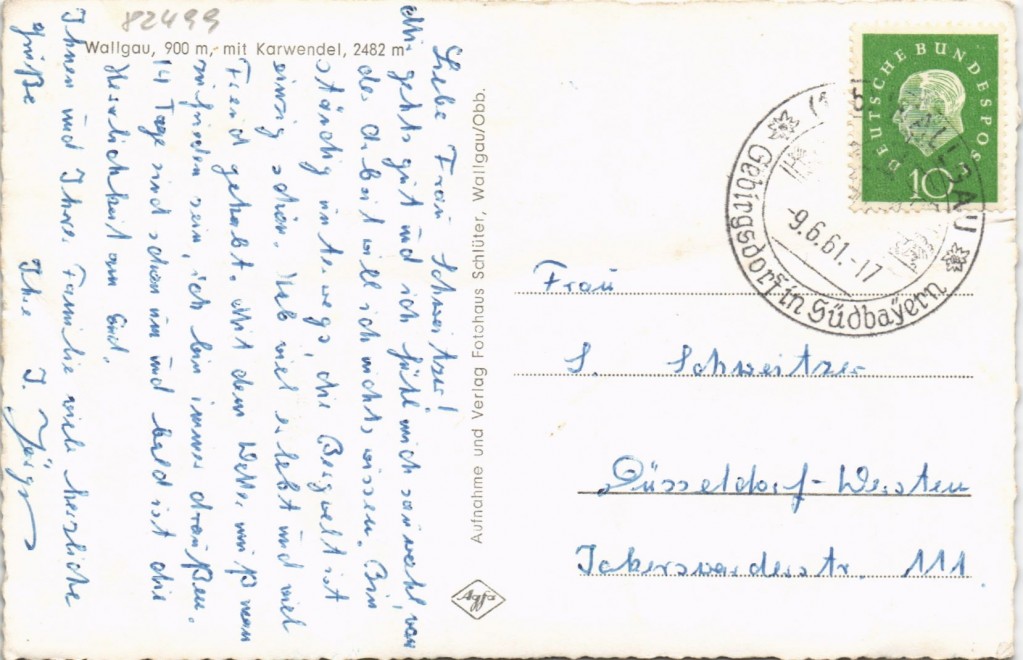 82499
Wallgau, 900 m, mit Karwendel, 2482 m
Liebe Frau Schweitzer!
Mir gehts gut und ich fühl mich sauwohl, von
der Arbeit will ich nichts wissen. Bin
ständig unterwegs, die Bergwelt ist
einzig schön. Hab viel erlebt und viel
Freud gehabt. Mit dem Wetter muß man
zufrieden sein, ich bin immer draußen.
14 Tage sind schon um und bald ist die
Herrlichkeit am End.
Ihnen und Ihrer Familie viele herzliche
Grüße
Ihre J. Jäger
Aufnahme und Verlag Fotohaus Schlüter, Wallgau/Obb.
Agfa
DEUTSCHE BUNDESPOST
10
WALLGAU
-9.6.61.-17
Gebirgsdorf in Südbayern
Frau
S. Schweitzer
Düsseldorf-Wersten
Ickerswarderstr. 111